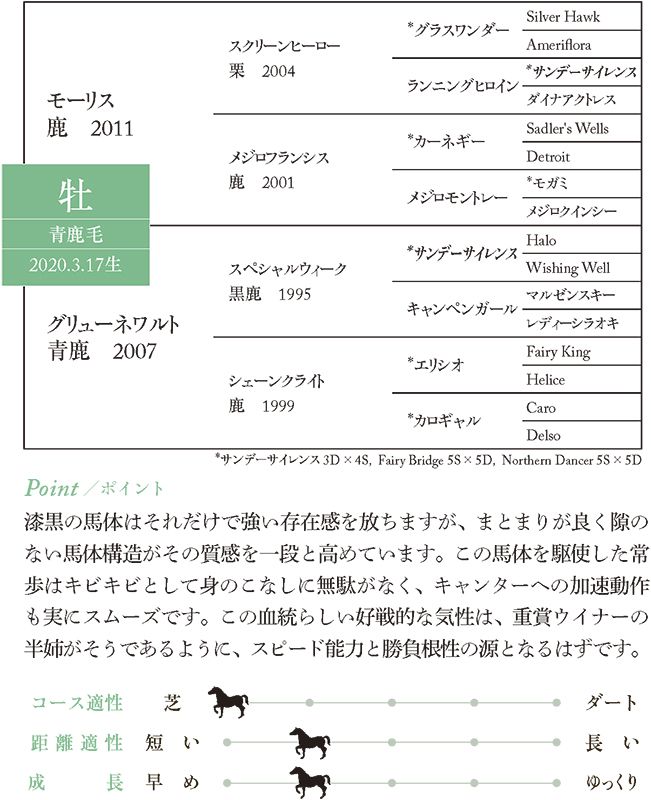 モーリス
鹿 2011
スクリーンヒーロー
栗 2004
*グラスワンダー
Silver Hawk
Ameriflora
ランニングヒロイン
*サンデーサイレンス
ダイナアクトレス
メジロフランシス
鹿 2001
*カーネギー
Sadler's Wells
Detroit
メジロモントレー
*モガミ
メジロクインシー
牡
青鹿毛
2020.3.17生
グリューネワルト
青鹿 2007
スペシャルウィーク
黒鹿 1995
*サンデーサイレンス
Halo
Wishing Well
キャンペンガール
マルゼンスキー
レディーシラオキ
シェーンクライト
鹿 1999
*エリシオ
Fairy King
Helice
*カロギャル
Caro
Delso
*サンデーサイレンス3D×4S, Fairy Bridge 5S×5D, Northern Dancer 5S×5D
Point／ポイント
漆黒の馬体はそれだけで強い存在感を放ちますが、まとまりが良く隙の
ない馬体構造がその質感を一段と高めています。この馬体を駆使した常
歩はキビキビとして身のこなしに無駄がなく、キャンターへの加速動作
も実にスムーズです。この血統らしい好戦的な気性は、重賞ウイナーの
半姉がそうであるように、スピード能力と勝負根性の源となるはずです。
コース適性 芝 ダート
距離適性 短い 長い
成長 早め ゆっくり